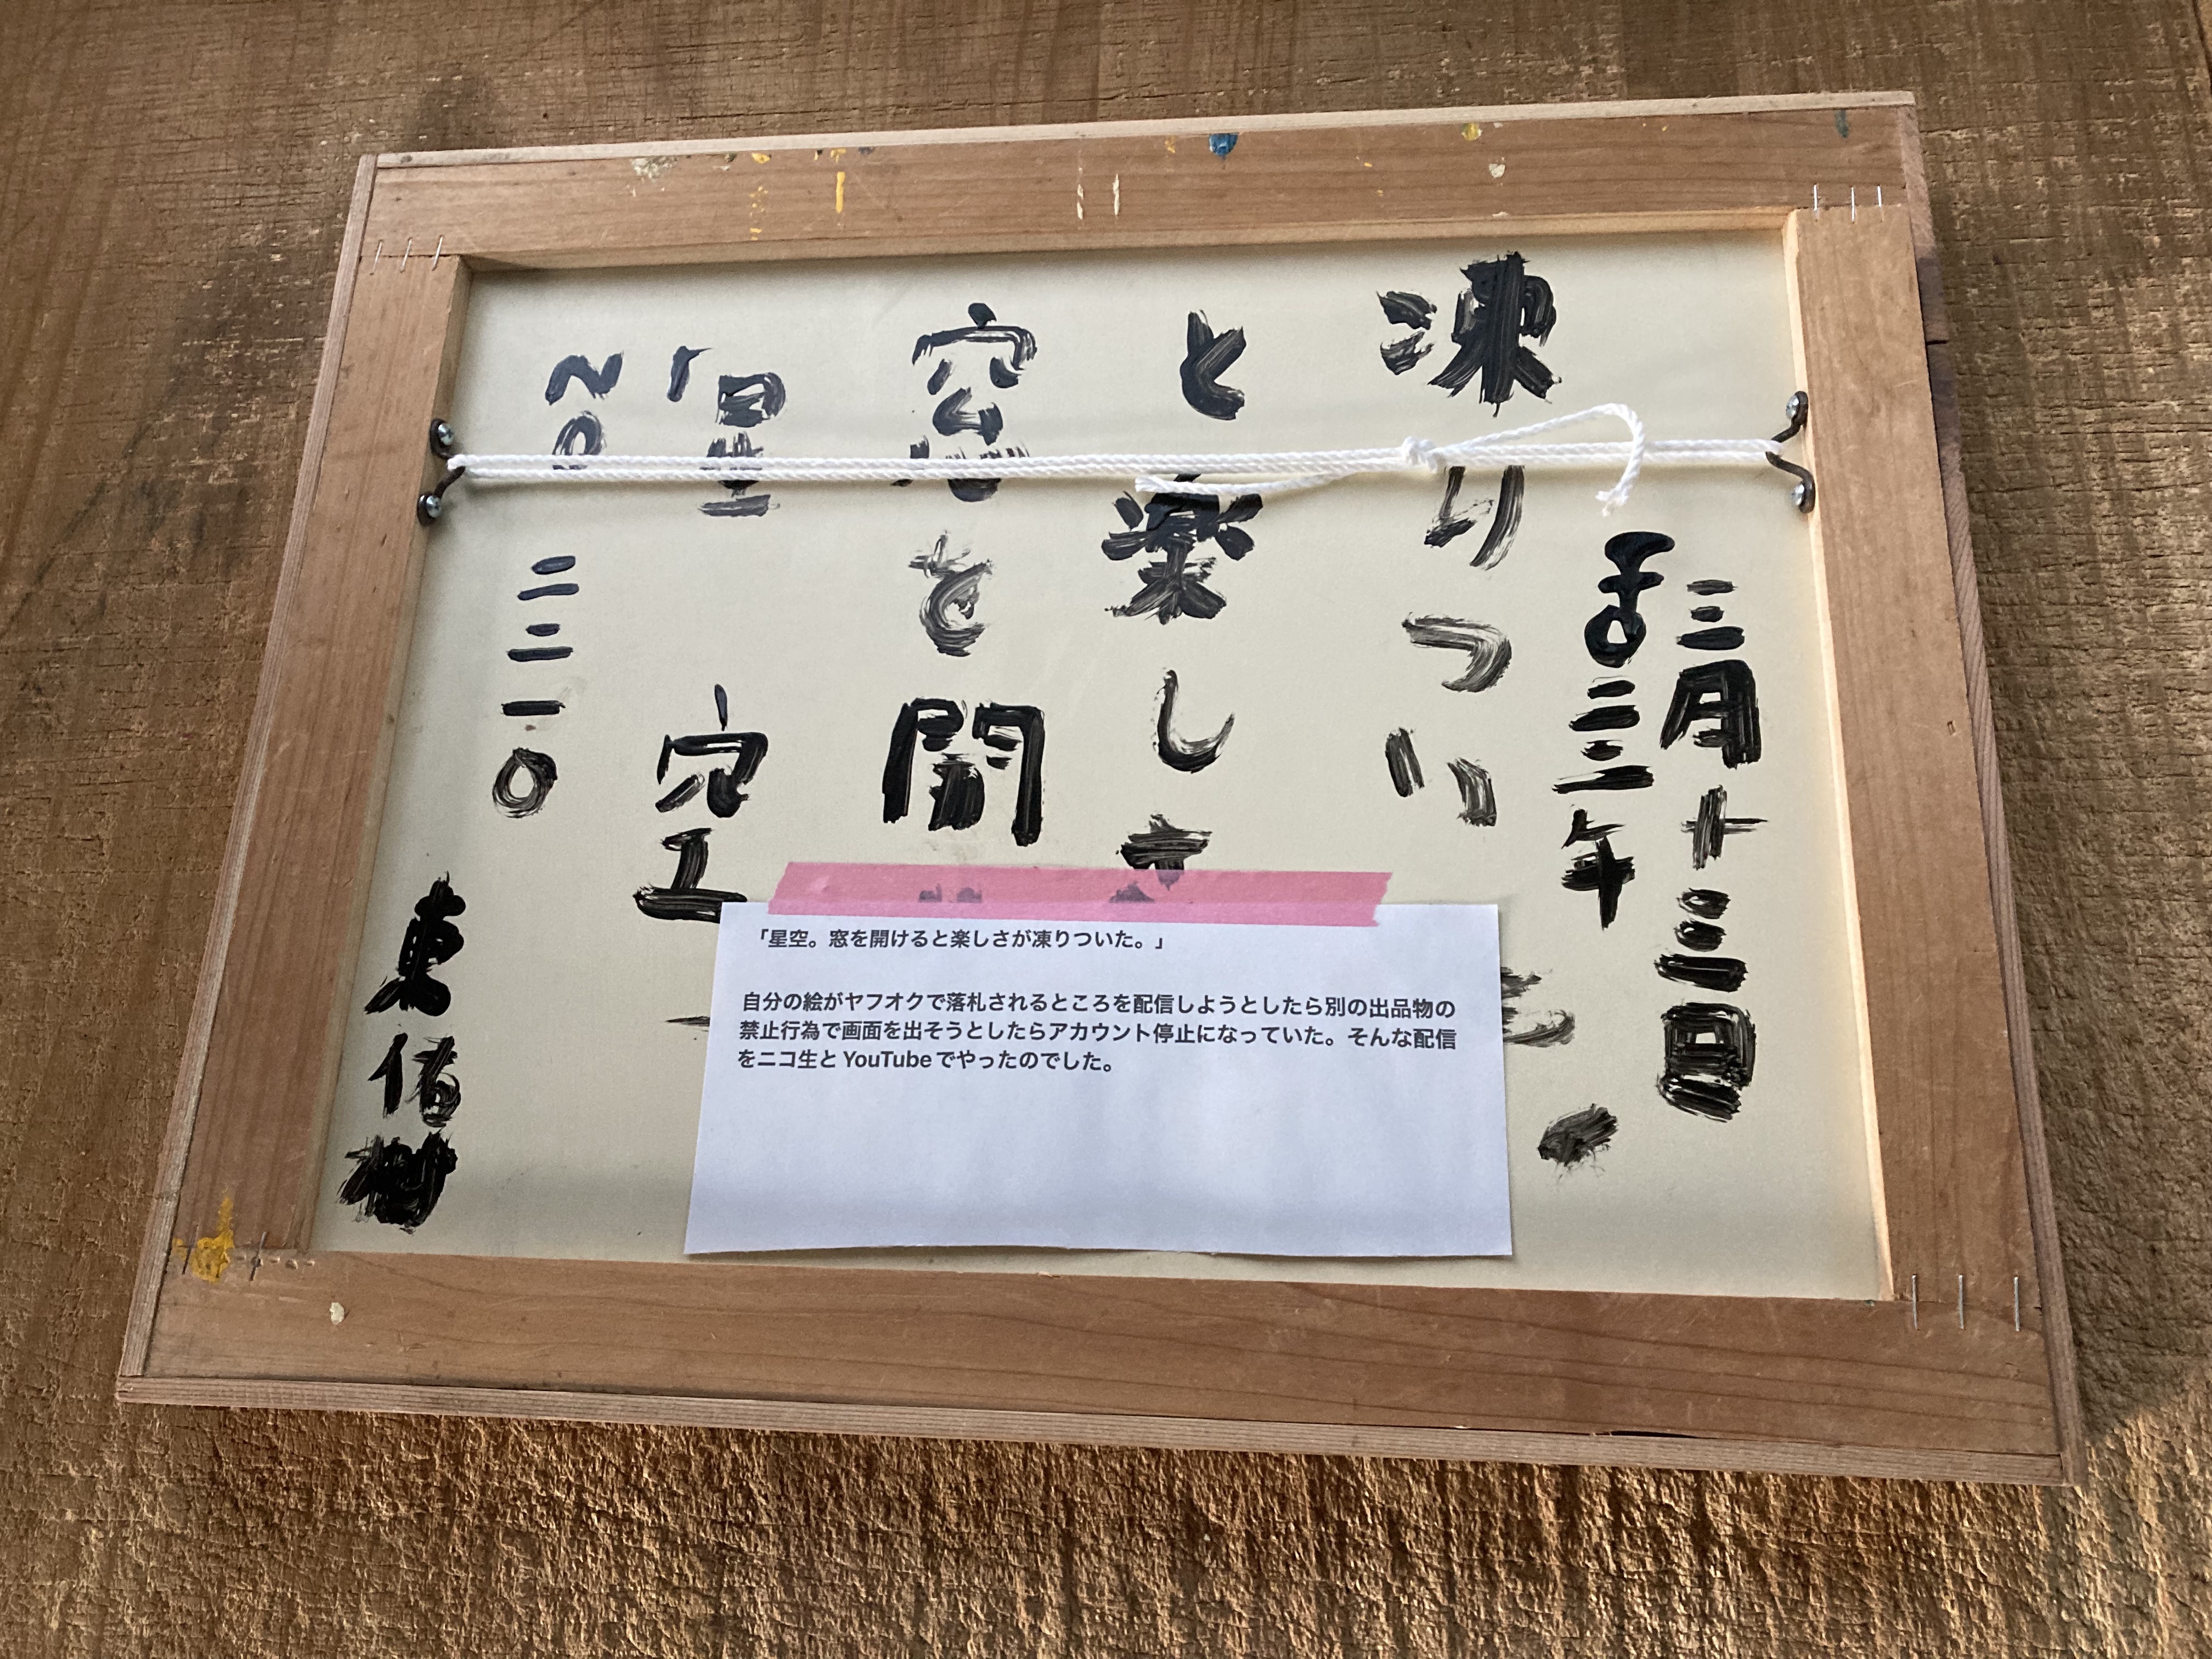 東佑樹
No 二二一〇
「星空
窓を開
と楽しさ
凍りついた。
二〇二三年
三月十三日
「星空。窓を開けると楽しさが凍りついた。」
自分の絵がヤフオクで落札されるところを配信しようとしたら別の出品物の
禁止行為で画面を出そうとしたらアカウント停止になっていた。そんな配信
をニコ生と YouTube でやったのでした。